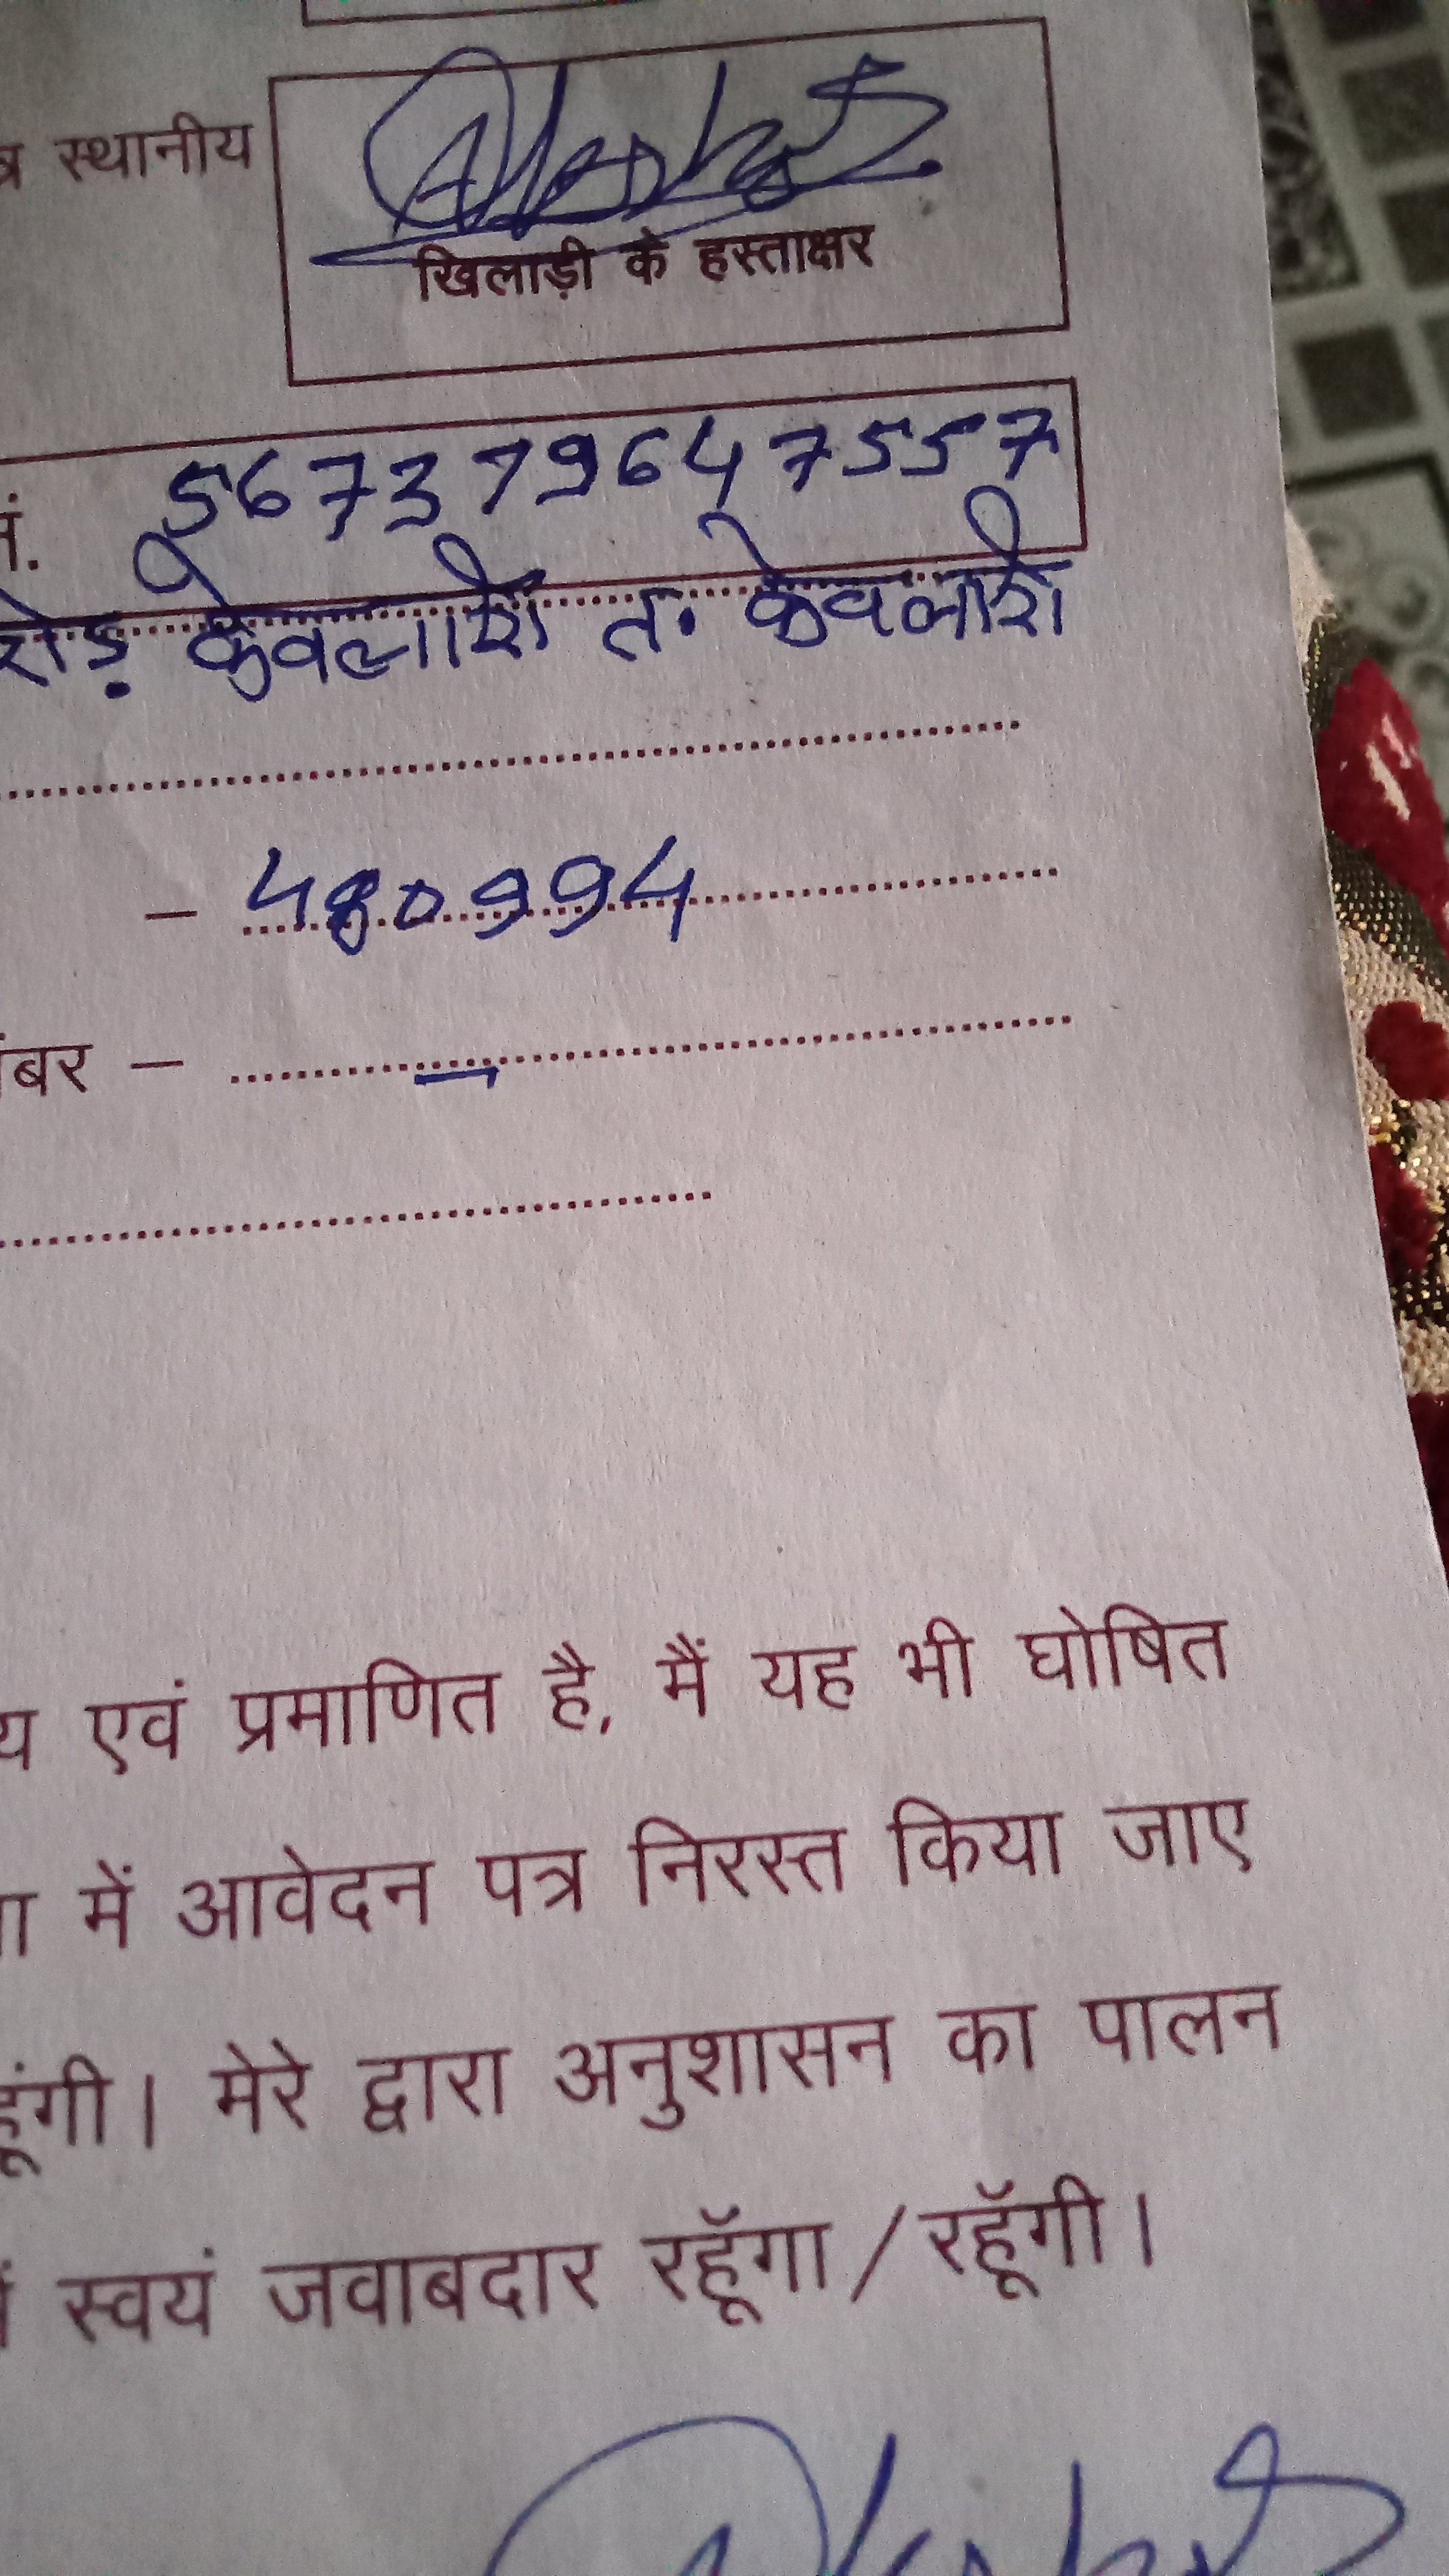 स्थानीय
खिलाड़ी के हस्ताक्षर
नं. 5673796477557
रोड़ केवलारी त. केवलारी
– 480994
नंबर –
य एवं प्रमाणित है, मैं यह भी घोषित
में आवेदन पत्र निरस्त किया जाए
हूंगी। मेरे द्वारा अनुशासन का पालन
स्वयं जवाबदार रहूॅंगा / रहूॅंगी।